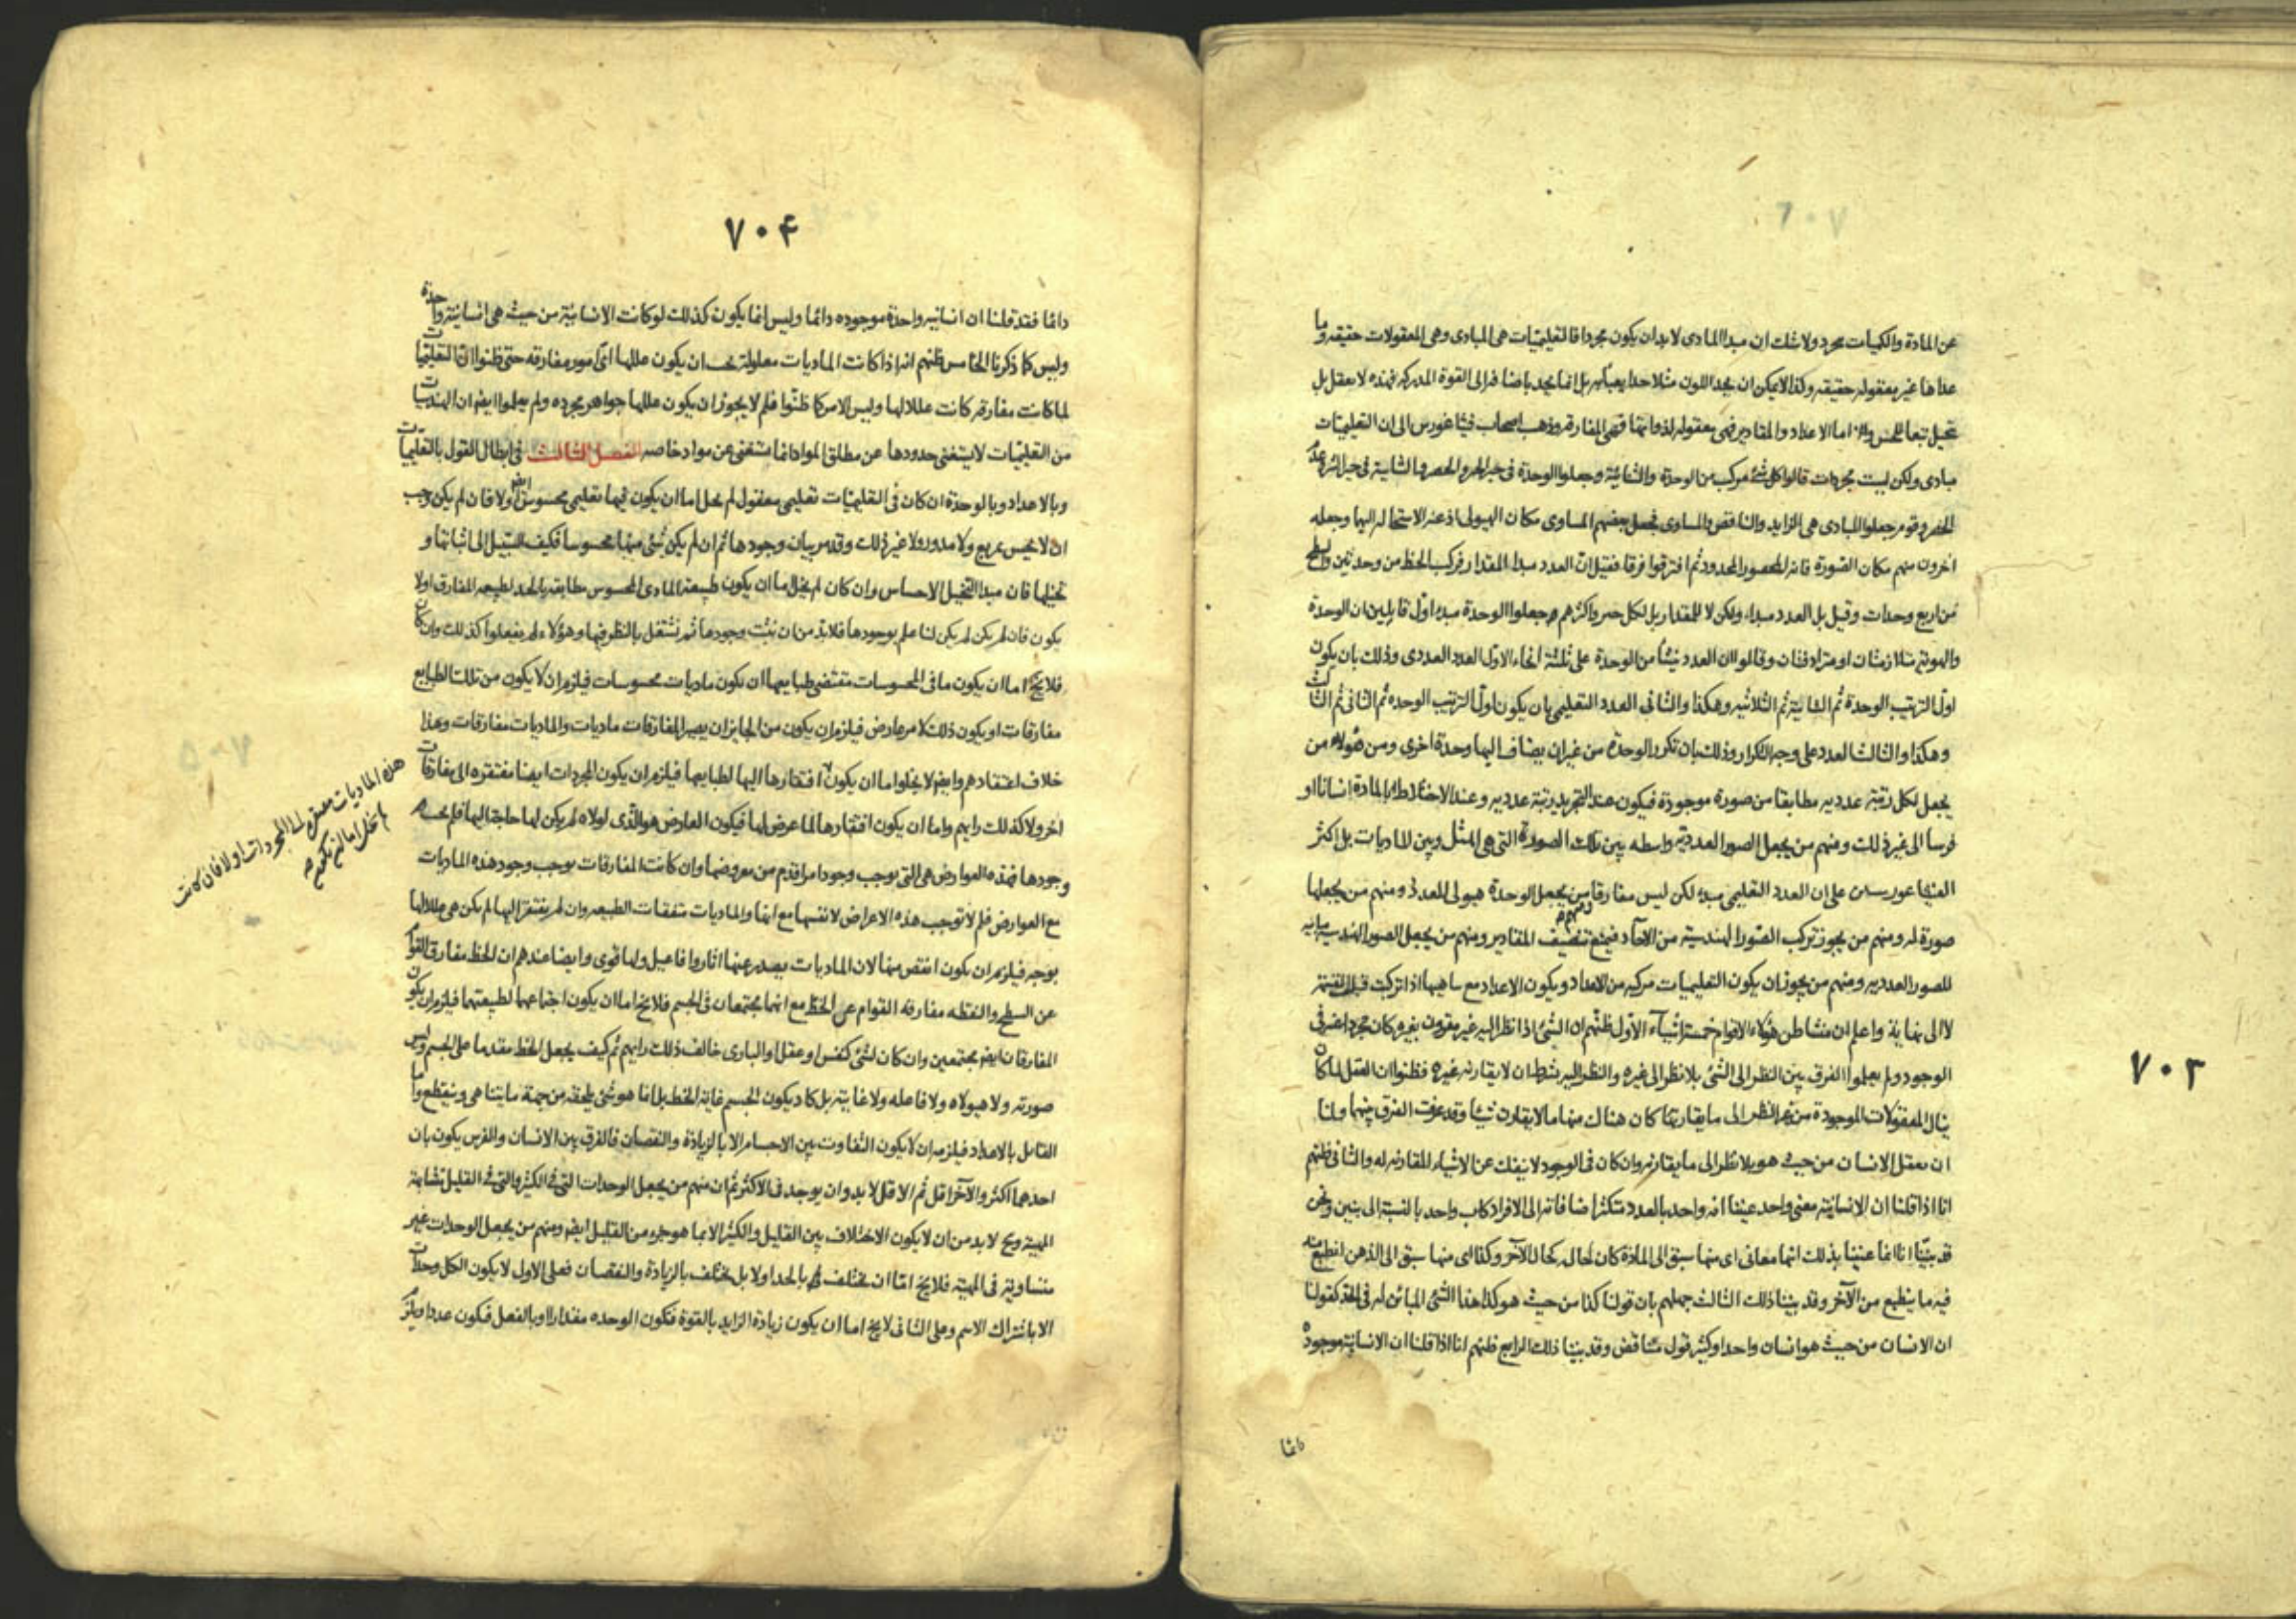 ٧٠٣
عن المادة والكميات مجرد ولا شك ان مبدا المادى لابد ان يكون مجردا فالتعليميات هى المبادى وهى المعقولات حقيقه وما
عداها غير معقوله حقيقه وكذا لايمكن ان يحد اللون مثلا حدا يعبأ به بل انما يحد باضافه الى القوة المدركه فهذه لا يعقل بل
تخيل تبعا للحس واما الاعداد والمقادير فهى معقوله لذواتها فهى المفارقه وذهب اصحاب فيثاغورس الى ان التعليميات
مبادى ولكن ليست مجردات قالوا كل شئ مركب من الوحدة والثنائية وجعلوا الوحدة فى حيز الخير والحصر والثنائية فى حيز الشر وعدم
الحصر وقوم جعلوا المبادى هى الزايد والناقص والمساوى فجعل بعضهم المساوى مكان الهيولى اذ عنه الاستحاله اليها وجعله
اخرون منهم مكان الصورة فانه المحصور المحدود ثم افترقوا فرقا فقيل ان العدد مبدا المقدار فركب الخط من وحدتين والسطح
من اربع وحدات وقيل بل العدد مبداء ولكن لا للمقدار بل لكل حيز واكثرهم جعلوا الوحدة مبدء اول قايلين ان الوحدة
والهوية متلازمتان او مترادفتان وقالوا ان العدد ينشأ من الوحدة على ثلثة انحاء الاول العدد العددى وذلك بان يكون
اول الترتيب الوحدة ثم الثنائية ثم الثلاثيه وهكذا والثانى العدد التعليمى بان يكون اول الترتيب الوحده ثم الثانى ثم الثالث
وهكذا والثالث العدد على وجه التكرار وذلك بان تكرر الوحدة من غير ان يضاف اليها وحدة اخرى ومن هؤلاء من
يجعل لكل رتبة عدديه مطابقا من صورة موجودة فيكون عند التجريد رتبة عدديه وعند الاختلاط بالمادة انسانا او
فرسا الى غير ذلك ومنهم من يجعل الصور العددية واسطه بين تلك الصورة التى هى المثل وبين الماديات بل اكثر
الفيثاعورسىن على ان العدد التعليمى مبدء لكن ليس مفارقا ومنهم من يجعل الوحدة هيولى للعدد ومنهم من يجعلها
صورة له ومنهم من يجوز تركب الصور الهندسية من الآحاد فيمنع تنصيف المقادير ومنهم من يجعل الصور الهندسيه مباينه
للصور العدديه ومنهم من يجوز ان يكون التعليميات مركبه من الاعداد ويكون الاعداد مع تناهيها اذا تركبت قبلت القسمة
لا الى نهاية واعلم ان منشا ظن هؤلاء الاقوام خمسة اشياء الاول ظنهم ان الشئ اذا نظر اليه غير مقرون بغيره كان مجردا عنه فى
الوجود ولم يعلموا الفرق بين النظر الى الشئ بلا نظر الى غيره والنظر اليه بشرط ان لا يقارنه غيره فظنوا ان العقل لما كان
ينال المعقولات الموجودة من غير النظر الى ما يقارنها كان هناك منها ما لا يقارن شيئا وقد عرفت الفرق بينهما ولنا
ان نعقل الانسان من حيث هو بلا نظر الى ما يقارنه وان كان فى الوجود لا ينفك عن الاشياء المقارنه له والثانى ظنهم
انا اذا قلنا ان الانسانية معنى واحد عنينا انه واحد بالعدد متكثر اضافاته الى الافراد كاب واحد بالنسبة الى بنين ونحن
قد بينا انا انما عنينا بذلك انها معانى اى منها سبق الى المادة كان لحاله كحال الآخر وكذا اى منها سبق الى الذهن انطبع منه
فيه ما ينطبع من الآخر وقد بينا ذلك الثالث جهلهم بان قولنا كذا من حيث هو كذا هذا الشئ المباين له فى الحد كقولنا
ان الانسان من حيث هو انسان واحد او كثير قول متناقض وقد بينا ذلك الرابع ظنهم انا اذا قلنا ان الانسانية موجودة
دائما
٧٠۴
دائما فقد قلنا ان انسانيه واحدة موجوده دائما وليس انما يكون كذلك لو كانت الانسانية من حيث هى انسانية واحدة
وليس كما ذكرنا الخامس ظنهم انه اذا كانت الماديات معلولة يجب ان يكون عللها اى امور مفارقه حتى ظنوا ان التعليميات
لما كانت مفارقه كانت عللا لها وليس الامر كما ظنوا فلم لا يجوز ان يكون عللها جواهر مجرده ولم يعلموا ايضا ان الهندسيات
من التعليميات لا يستغنى حدودها عن مطلق المواد انما تستغنى عن مواد خاصه الفصل الثالث فى ابطال القول بالتعليميات
وبالاعداد وبالوحدة ان كان فى التعليميات تعليمى معقول لم يخل اما ان يكون فيها تعليمى محسوس ايضا اولا فان لم يكن وجب
ان لا يحس بمربع ولا مدور ولا غير ذلك وقد مر بيان وجودها ثم ان لم يكن شئ منها محسوسا فكيف السبيل الى اثباتها و
تخيلها فان مبدا التخيل الاحساس وان كان لم يخل اما ان يكون طبيعة المادى المحسوس مطابقه بالحد لطبيعه المفارق اولا
يكون فان لم يكن لم يكن لنا علم بوجودها فلابد من ان نثبت وجودها ثم نشتغل بالنظر فيها وهؤلاء لم يفعلوا كذلك وان كان
فلا يخ اما ان يكون ما فى المحسوسات مقتضى طبايعها ان تكون ماديات محسوسات فيلزم ان لا يكون من تلك الطبايع
مفارقات او يكون ذلك لامر عارض فيلزم ان يكون من الجايز ان يصير المفارقات ماديات والماديات مفارقات وهذا
خلاف اعتقادهم وايضا لا يخلو اما ان يكون افتقارها اليها لطبايعها فيلزم ان يكون المجردات ايضا مفتقره الى مفارقات
اخر ولا كذلك رايهم واما ان يكون افتقارها لما عرض لها فيكون العارض هو الذى لولاه لم يكن لها حاجة اليها فلم يحب
وجودها فهذه العوارض هى التى يوجب وجود امر اقدم من معروضها وان كانت المفارقات يوجب وجود هذه الماديات
مع العوارض فلم لا توجب هذه الاعراض لانفسها مع انها والماديات متفقات الطبيعه وان لم يفتقر اليها لم يكن هى عللا لها
بوجه فيلزم ان يكون انقص منها لان الماديات يصدر عنها اثار وافاعيل ولها قوى وايضا عندهم ان الخط مفارق القوام
عن السطح والنقطه مفارقه القوام عن الخط مع انها مجتمعان فى الجسم فلا يخ اما ان يكون اجتماعهما لطبيعتهما فيلزم ان يكون
المفارقان ايضا مجتمعين وان كان لشئ كنفس او عقل او البارى خالف ذلك رايهم ثم كيف يجعل الخط مقدما على الجسم وليس
صورته ولا هيولاه ولا فاعله ولا غايته بل كاد يكون الجسم غاية الخط بل انما هو شئ يلحقه من جهة ما يتناهى وينقطع واما
القائل بالاعداد فيلزمه ان لا يكون التفاوت بين الاجسام الا بالزيادة والنقصان فالفرق بين الانسان والفرس يكون بان
احدهما اكثر والآخر اقل ثم الاقل لا بد وان يوجد فى الاكثر ثم ان منهم من يجعل الوحدات التى فى الكثير والتى فى القليل متشابهة
المهية وح لا بد من ان لا يكون الاختلاف بين القليل والكثير الا بما هو جزء من القليل ايضا ومنهم من يجعل الوحدات غير
متساوية فى المهية فلا يخ اما ان يختلف بالحد اولا بل يختلف بالزيادة والنقصان فعلى الاول لا يكون الكل وحدات
الا باشتراك الاسم وعلى الثانى لا يخ اما ان يكون زيادة الزايد بالقوة فتكون الوحده مقدارا او بالفعل فيكون عددا ويلزم
هذه الماديات مفتقرة الى المجردات اولا فان كانت